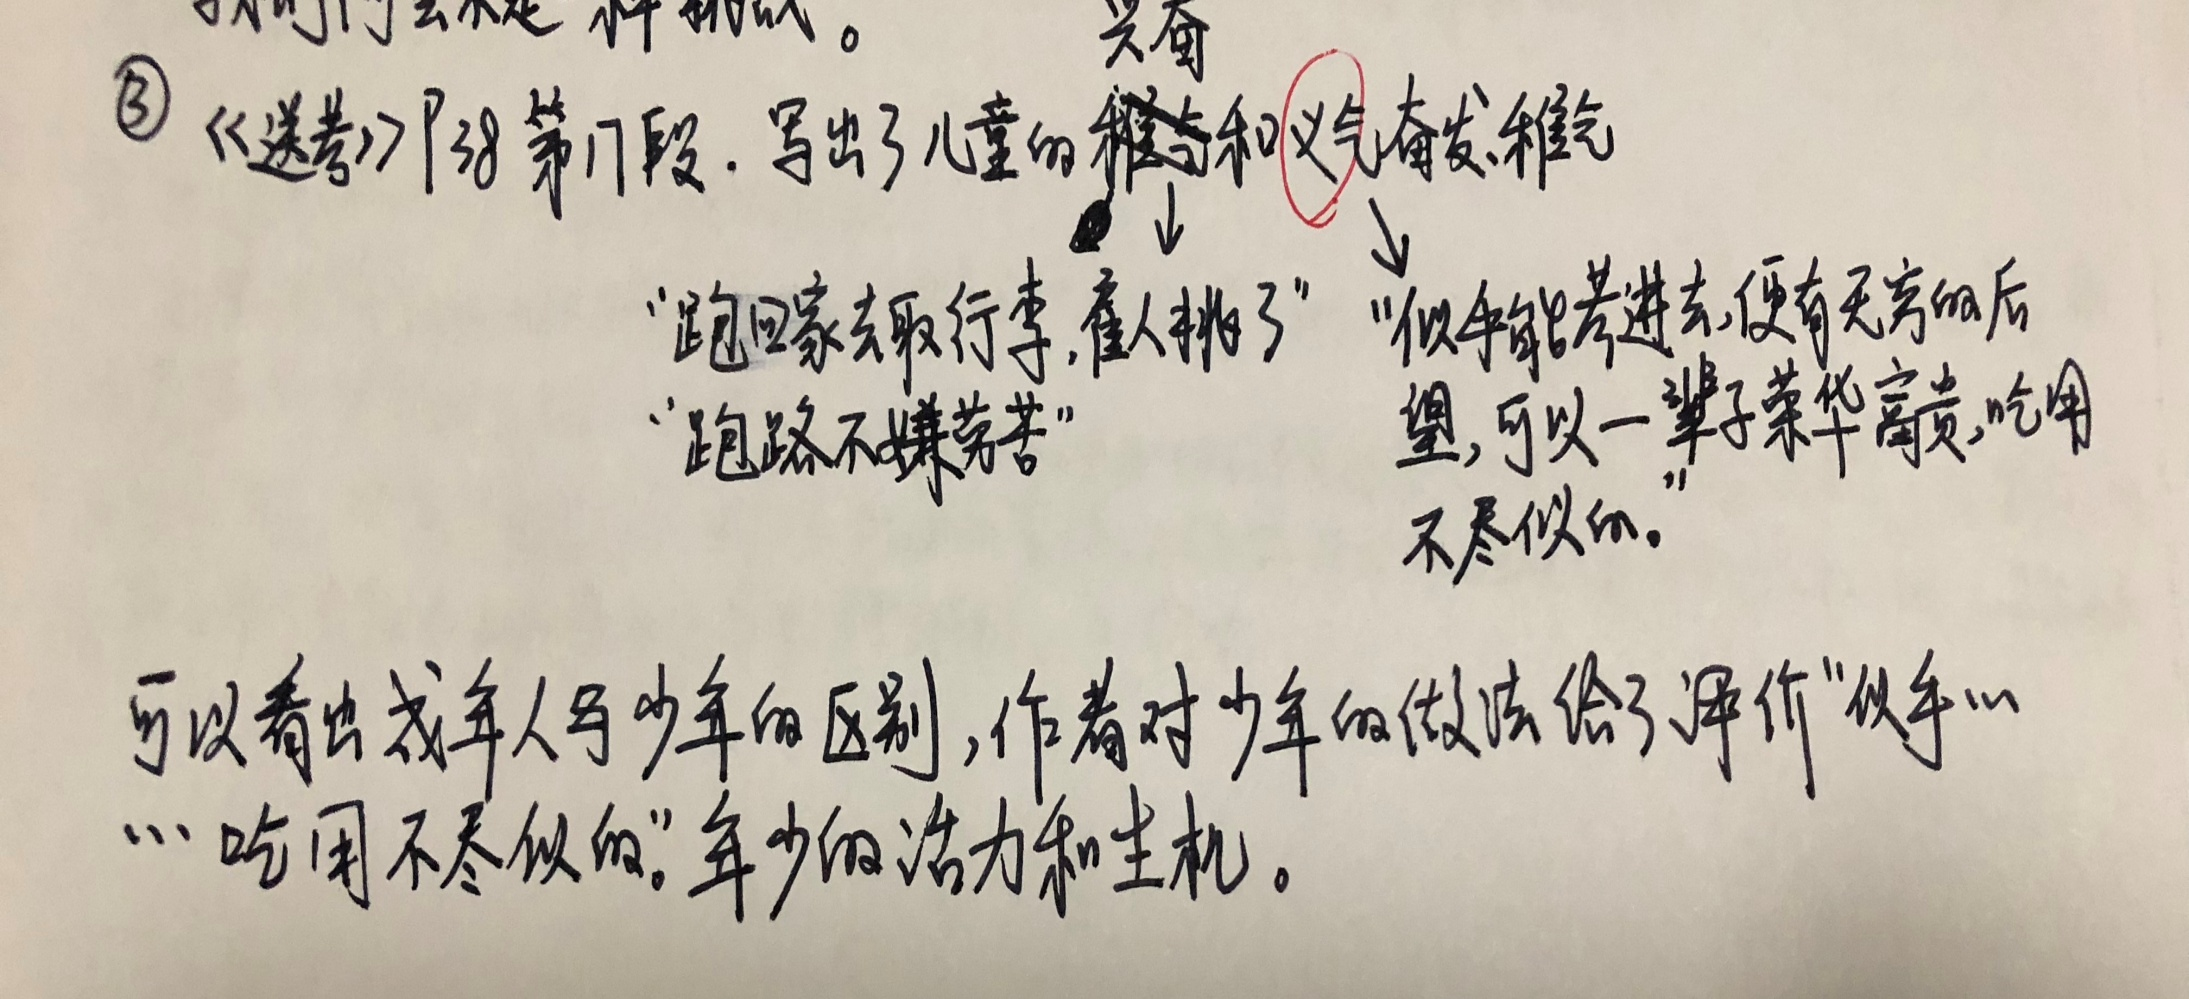 兴奋
③《送考》P38 第17段.写出了儿童的和义气奋发、稚气
“跑回家去取行李,雇人挑了” “似乎能考进去,便有无穷的后
“跑路不嫌劳苦” 望,可以一辈子荣华富贵,吃用
不尽似的。”
可以看出成年人与少年的区别,作者对少年的做法给了评价“似乎…
…吃用不尽似的。”年少的活力和生机。